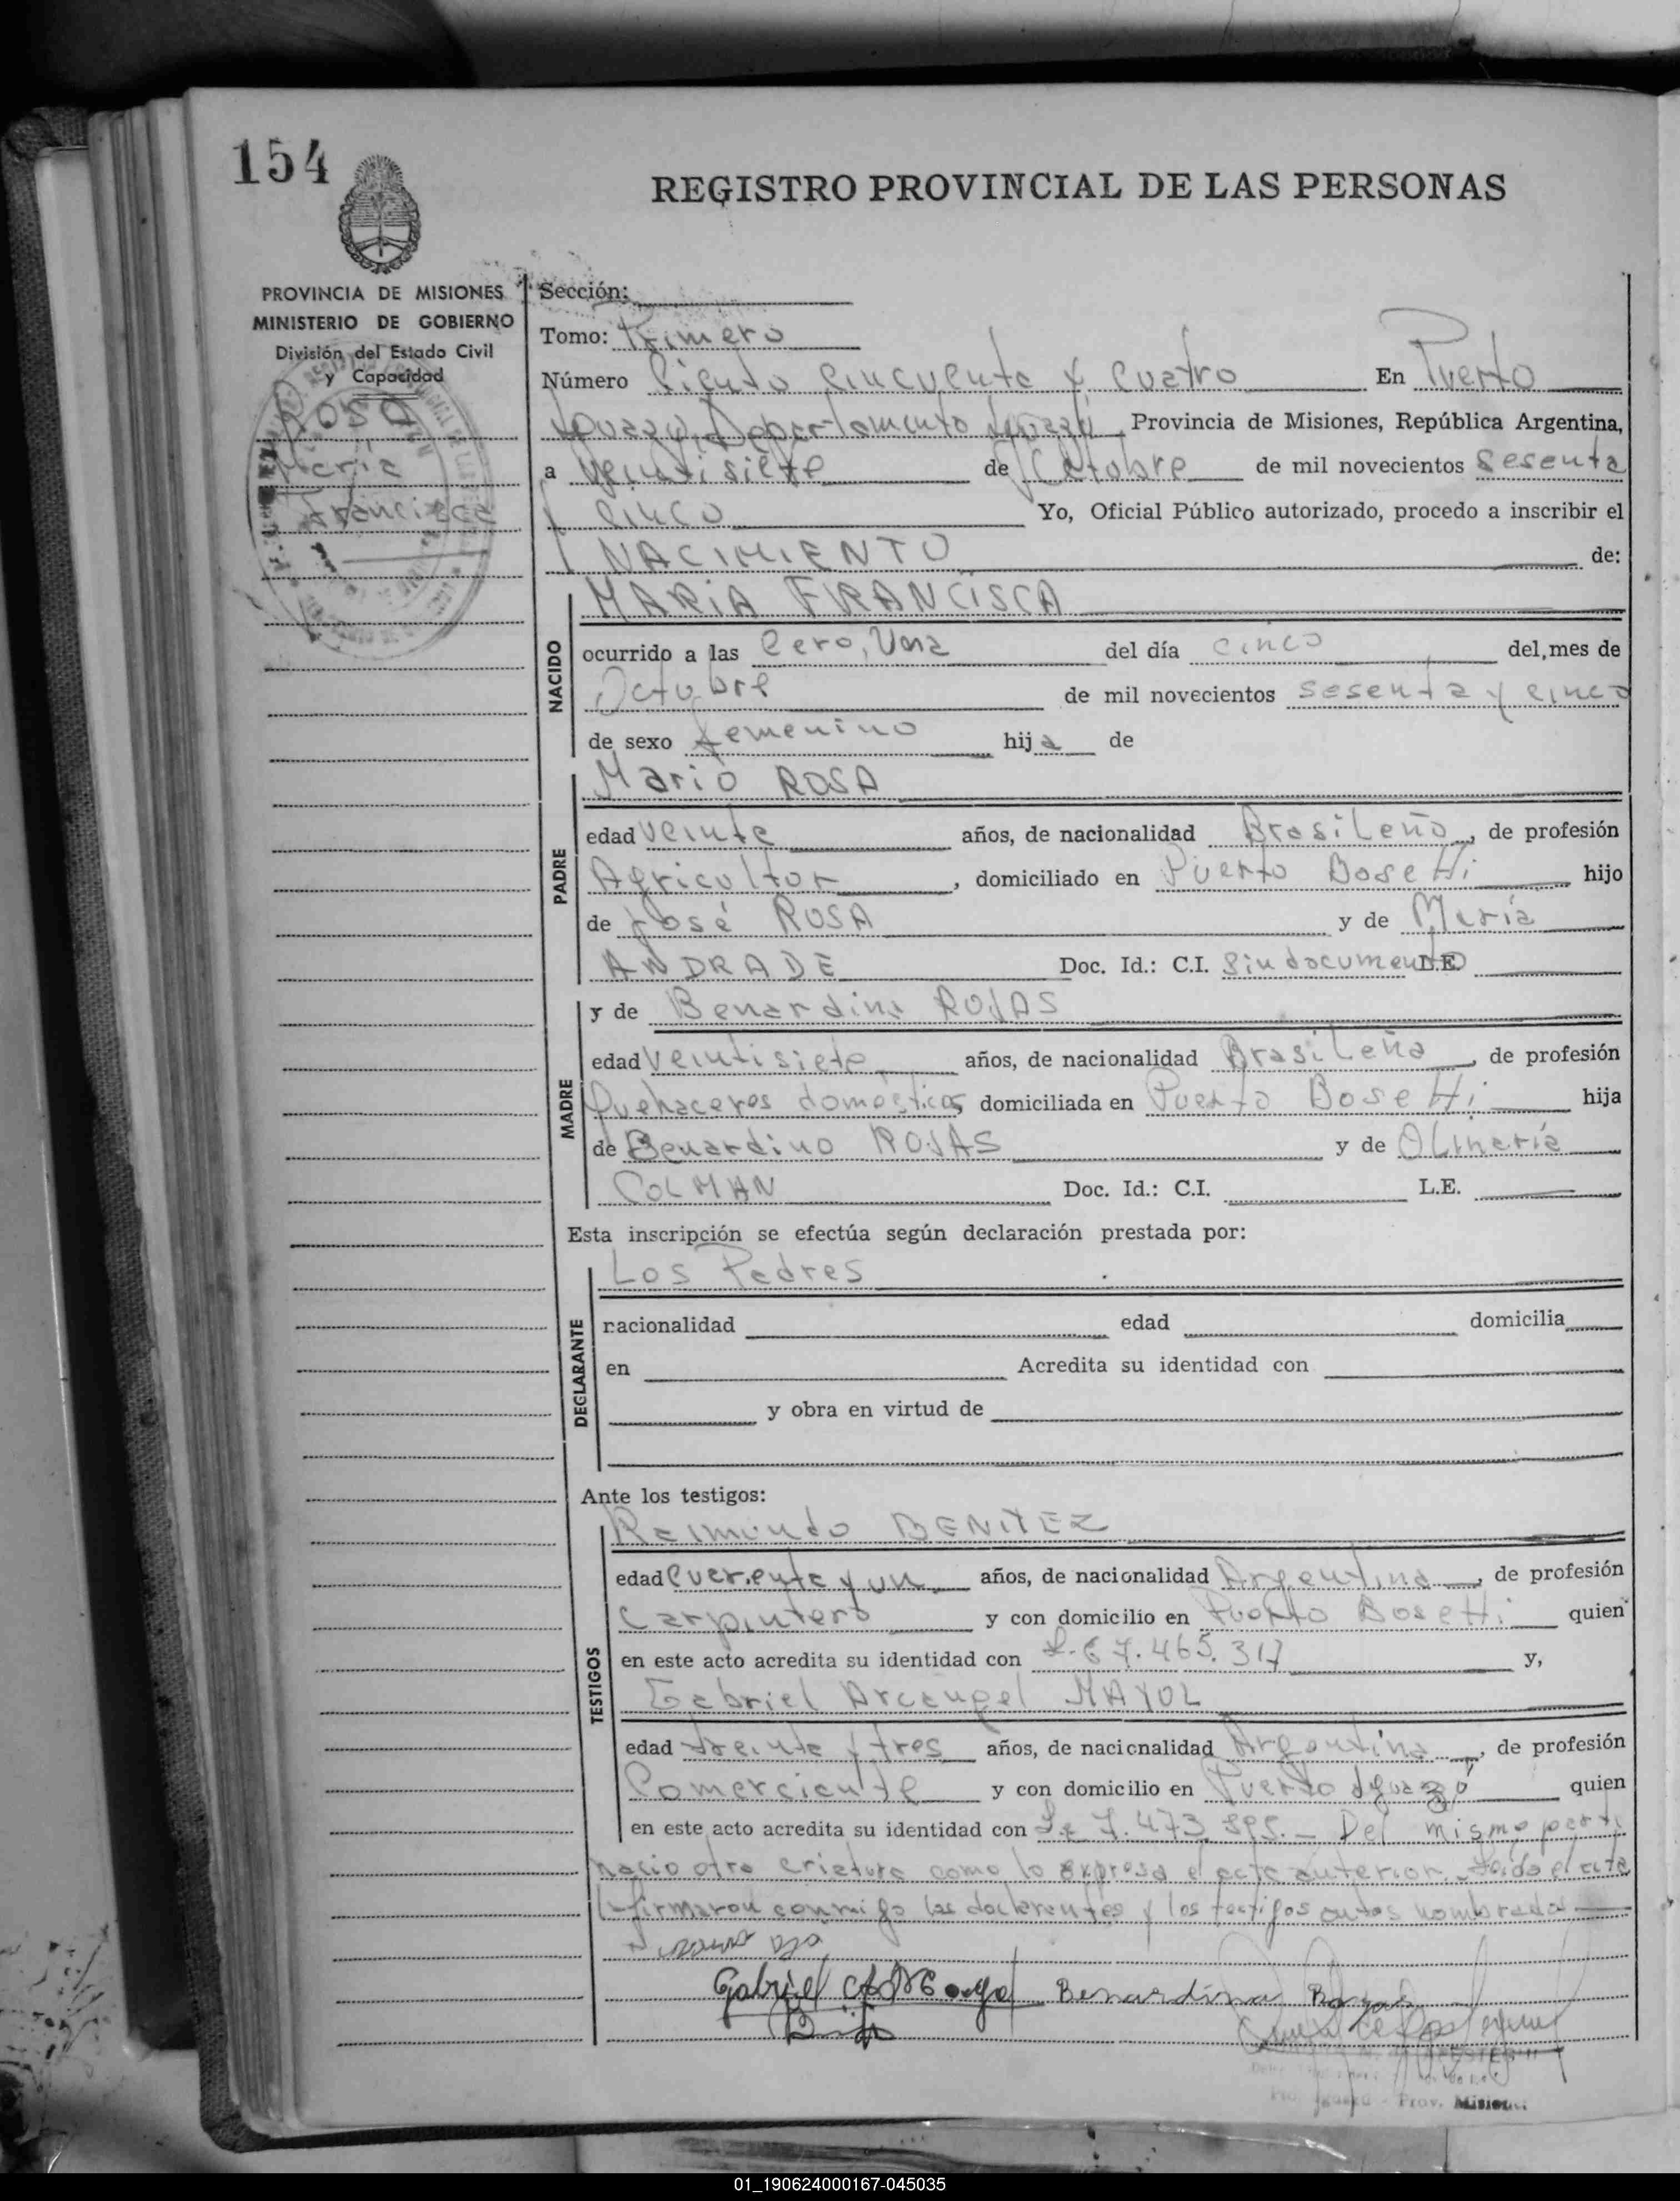 154
REGISTRO PROVINCIAL DE LAS PERSONAS
PROVINCIA DE MISIONES
MINISTERIO DE GOBIERNO
División del Estado Civil
y Capacidad
ROSA
María
Francisca
Sección:
Tomo: Primero
Número Ciento Cincuenta y cuatro En Puerto
Iguazú, Departamento Iguazú, Provincia de Misiones, República Argentina,
a Veintisiete de Octubre de mil novecientos Sesenta
y Cinco Yo, Oficial Público autorizado, procedo a inscribir el
NACIMIENTO de:
NACIDO
MARIA FRANCISCA
ocurrido a las Cero, Una del día cinco del mes de
Octubre de mil novecientos sesenta y cinco
de sexo femenino hija de
PADRE
Mario ROSA
edad veinte años, de nacionalidad Brasileño, de profesión
Agricultor, domiciliado en Puerto Bosetti hijo
de José ROSA y de María
ANDRADE Doc. Id.: C.I. Sin documento L.E.
MADRE
y de Benardina ROJAS
edad Veintisiete años, de nacionalidad Brasileña, de profesión
Quehaceres domésticos, domiciliada en Puerto Bosetti hija
de Benardino ROJAS y de Olimaría
COLMAN Doc. Id.: C.I. L.E.
Esta inscripción se efectúa según declaración prestada por:
DECLARANTE
Los Padres
nacionalidad edad domicilia
en Acredita su identidad con
y obra en virtud de
Ante los testigos:
TESTIGOS
Raimundo BENITEZ
edad Cuarenta y un años, de nacionalidad Argentina, de profesión
Carpintero y con domicilio en Puerto Bosetti quien
en este acto acredita su identidad con L.E 7.465.317 y,
Gabriel Arcangel MAYOL
edad treinta y tres años, de nacionalidad Argentina, de profesión
Comerciante y con domicilio en Puerto Iguazú quien
en este acto acredita su identidad con L.E 7.473. Del mismo parto
nacio otra criatura como lo expresa el acta anterior. Leida el acta
firmaron conmigo los declarantes y los testigos antes nombrados
Gabriel Benardina Rojas
Prov. Misiones
01_190624000167-045035